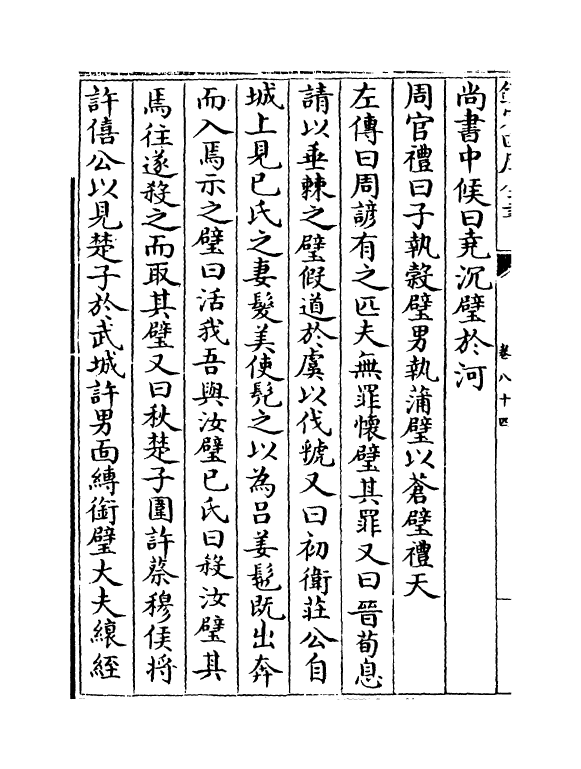 卷八十四
尚書中候曰堯沉璧於河
周官禮曰子執穀璧男執蒲璧以蒼璧禮天
左傳曰周諺有之匹夫無罪懷璧其罪又曰晉荀息
請以垂棘之璧假道於虞以伐虢又曰初衛莊公自
城上見已氏之妻髮美使髠之以為呂姜髢既出奔
而入焉示之璧曰活我吾與汝璧已氏曰殺汝璧其
焉往遂殺之而取其璧又曰秋楚子圍許蔡穆侯將
許僖公以見楚子於武城許男面縛銜璧大夫縗絰